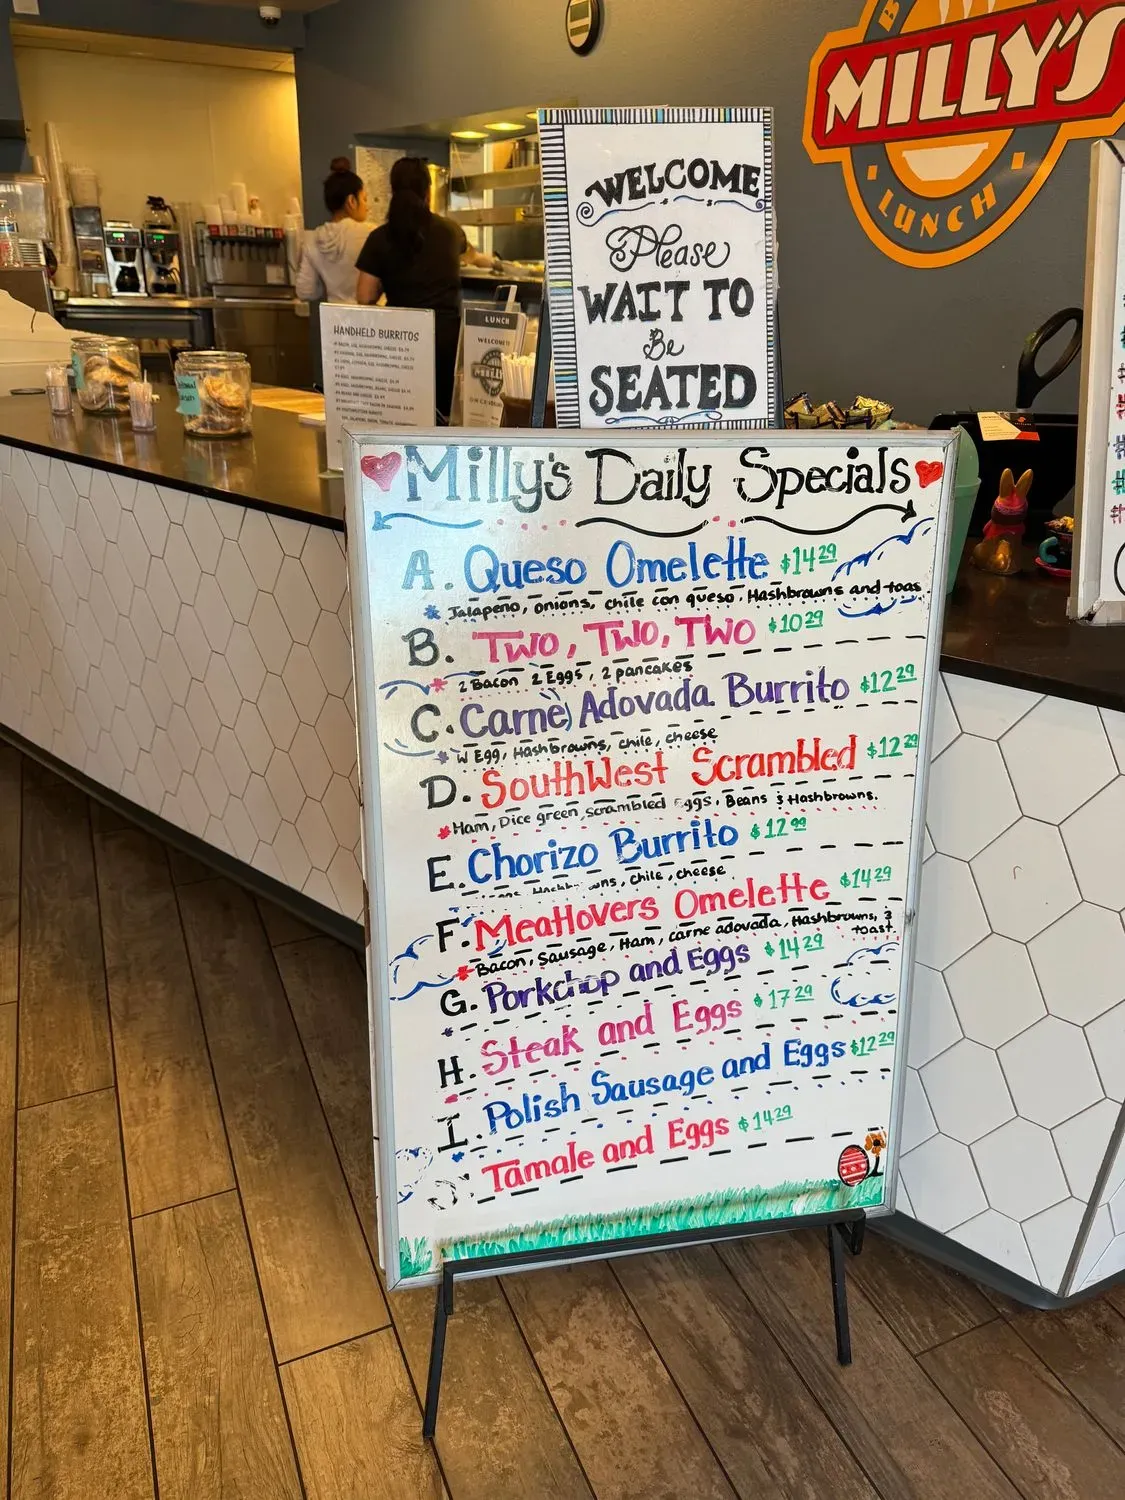 MILLY'S
LUNCH
WELCOME
Please
WAIT TO
Be
SEATED
HANDHELD BURRITOS
LUNCH
WELCOME
Milly's Daily Specials
A. Queso Omelette $14.29
* Jalapeño, onions, chile con queso, Hashbrowns and toas
B. Two, Two, Two $10.29
* 2 Bacon 2 Eggs, 2 pancakes
C. Carnè Adovada Burrito $12.29
* W Egg, Hashbrowns, chile, cheese
D. SouthWest Scrambled $12.29
* Ham, Dice green, scrambled Eggs, Beans & Hashbrowns.
E. Chorizo Burrito $12.99
chile, cheese
F. Meatlovers Omelette $14.29
* Bacon, Sausage, Ham, carne adovada, Hashbrowns, &
toast
G. Porkchop and Eggs $14.29
H. Steak and Eggs $17.29
I. Polish Sausage and Eggs $12.29
J. Tamale and Eggs $14.29